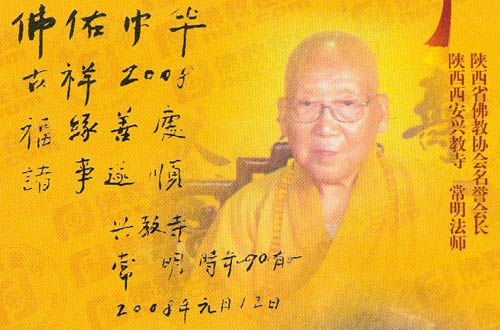 佛佑中华
吉祥2008
福緣善慶
諸事遂順
兴教寺
常明 時年90有一
2008年元月12日
陕西省佛教协会名誉会长
陕西西安兴教寺 常明法师